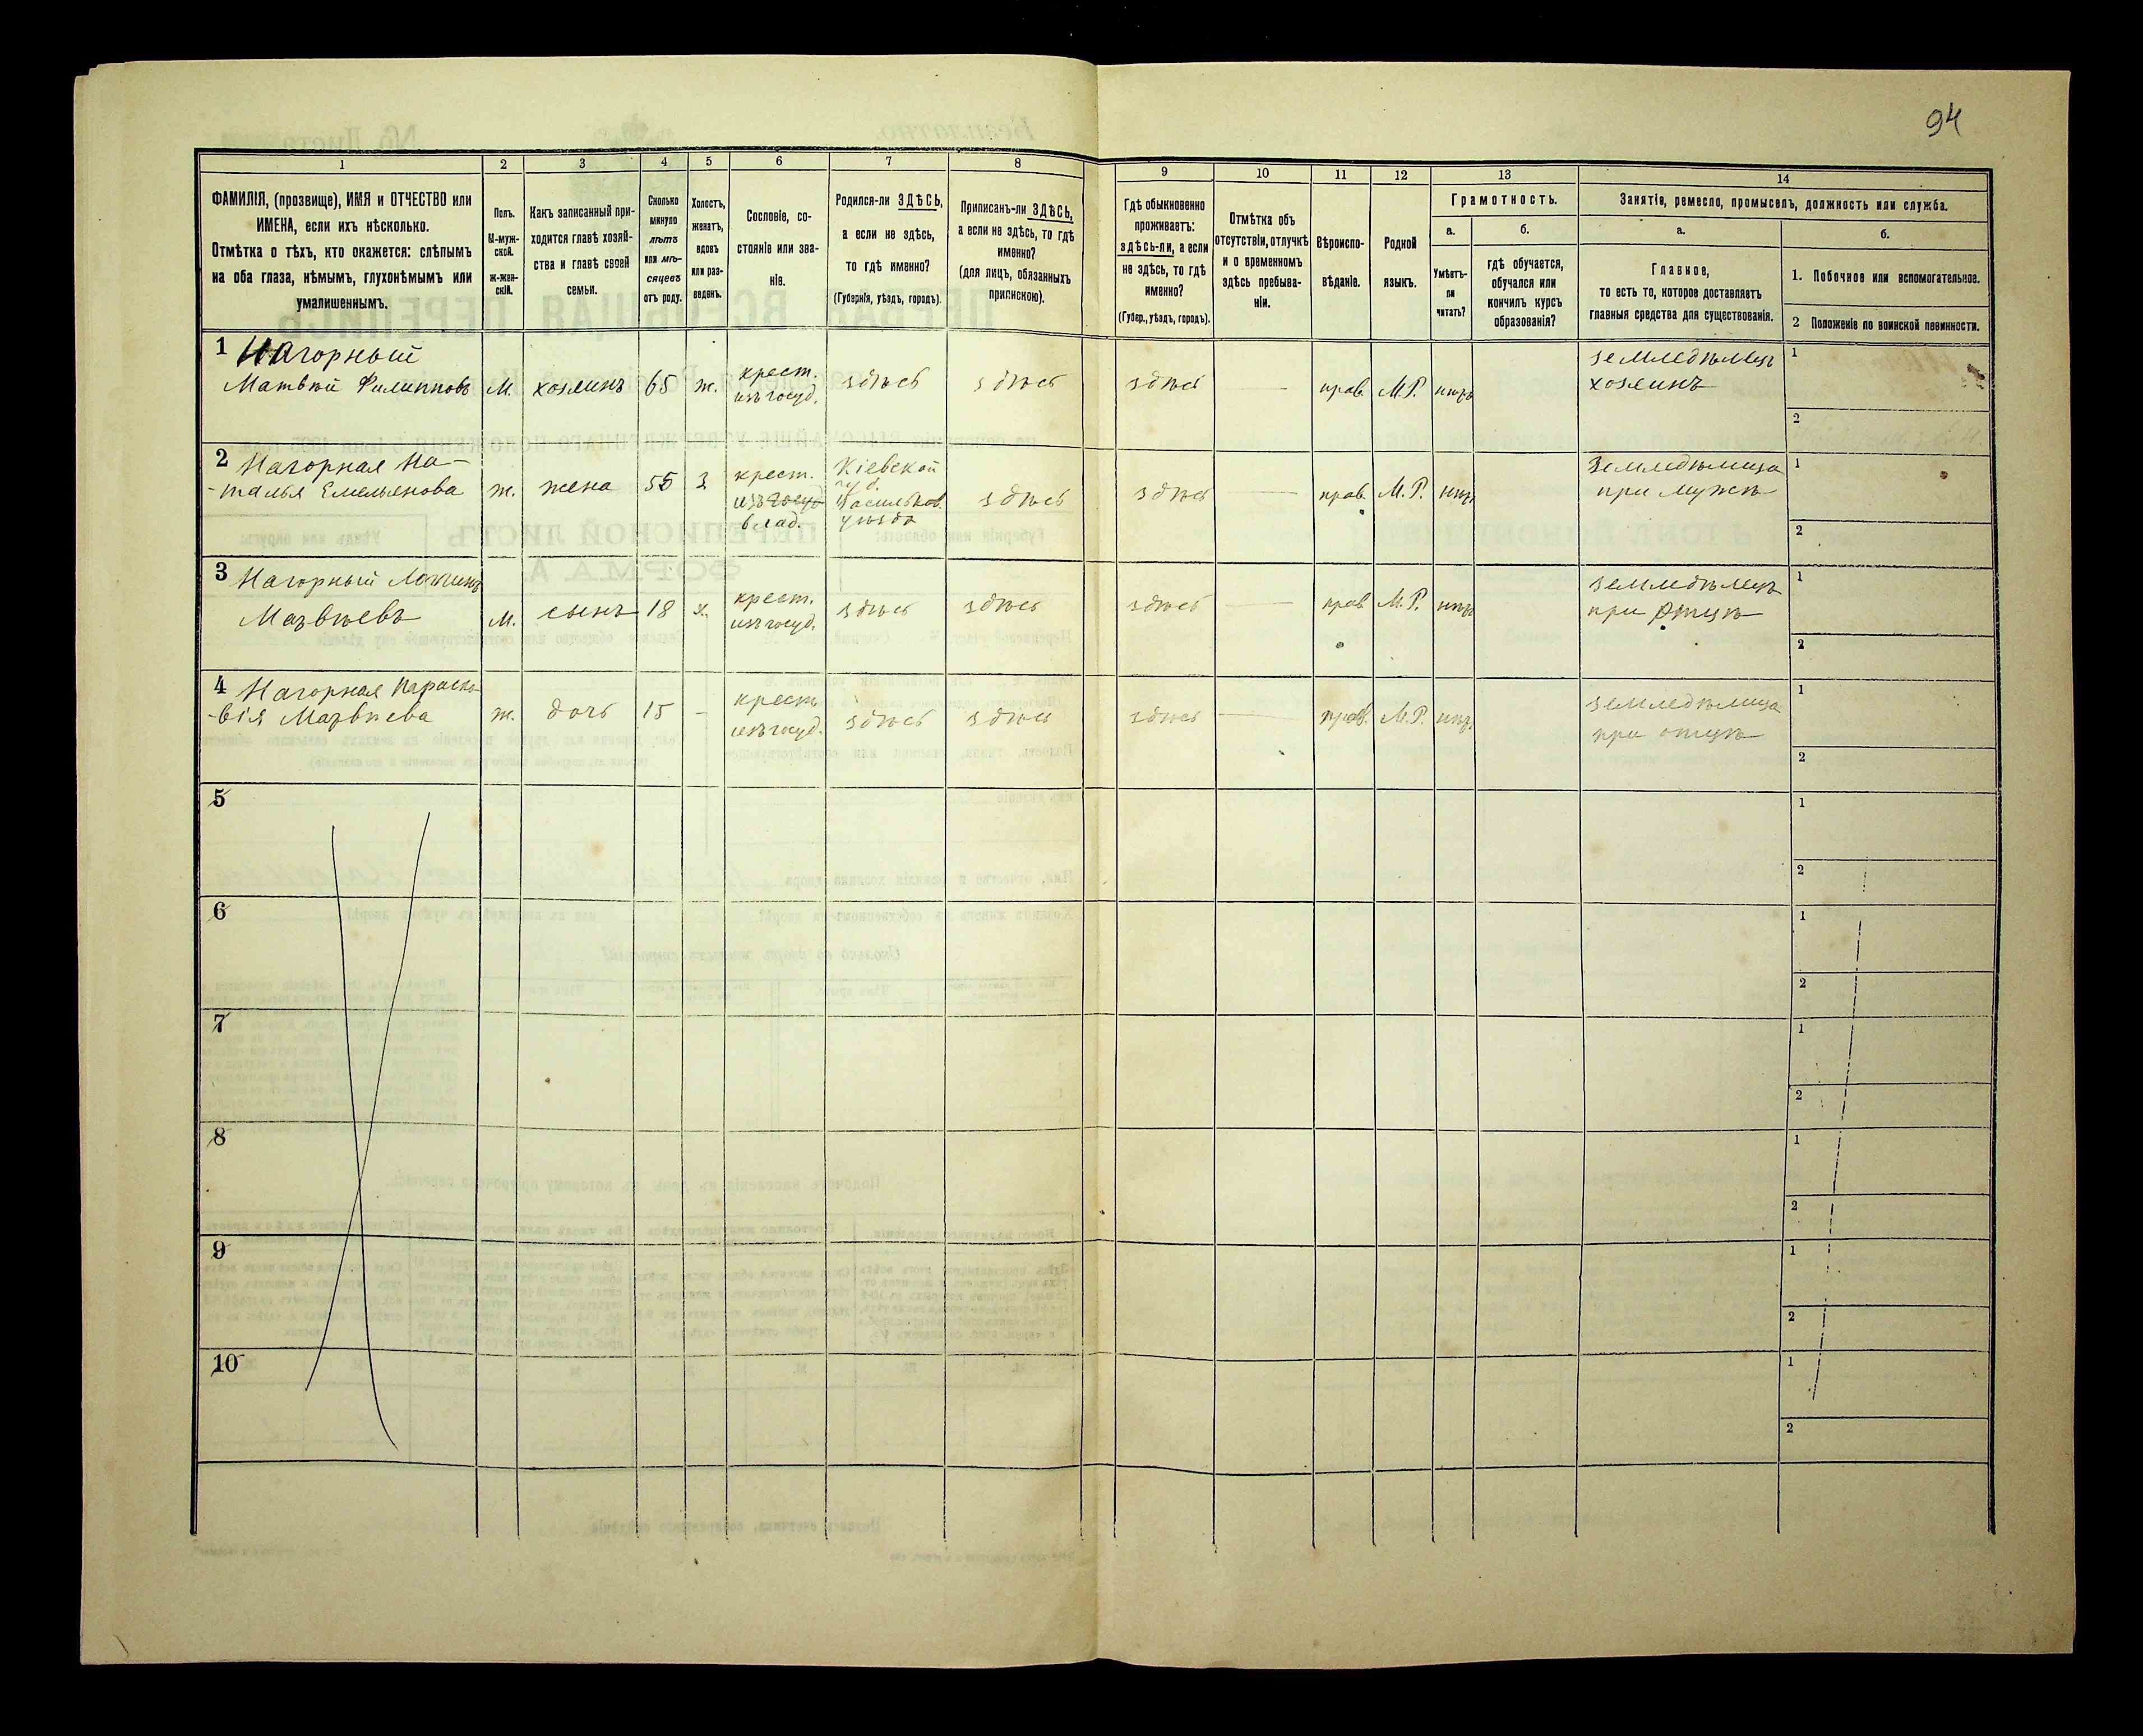 94
1 2 3 4 5 6 7 8 9 10 11 12 13 14
ФАМИЛІЯ, (прозвище), ИМЯ и ОТЧЕСТВО или
ИМЕНА, если ихъ нѣсколько.
Отмѣтка о тѣхъ, кто окажется: слѣпымъ
на оба глаза, нѣмымъ, глухонѣмымъ или
умалишеннымъ.
Полъ.
М-муж-
ской.
ж-жен-
скій.
Какъ записанный при-
ходится главѣ хозяй-
ства и главѣ своей
семьи.
Сколько
минуло
лѣтъ
или мѣ-
сяцевъ
отъ роду.
Холостъ,
женатъ,
вдовъ
или раз-
веденъ.
Сословіе, со-
стояніе или зва-
ніе.
Родился-ли ЗДѢСЬ,
а если не здѣсь,
то гдѣ именно?
(Губернія, уѣздъ, городъ).
Приписанъ-ли ЗДѢСЬ,
а если не здѣсь, то гдѣ
именно?
(для лицъ, обязанныхъ
припискою).
Гдѣ обыкновенно
проживаетъ:
здѣсь-ли, а если
не здѣсь, то гдѣ
именно?
(Губер., уѣздъ, городъ).
Отмѣтка объ
отсутствіи, отлучкѣ
и о временномъ
здѣсь пребыва-
ніи.
Вѣроиспо-
вѣданіе.
Родной
языкъ.
Грамотность.
а.
Умѣетъ-
ли
читать?
б.
гдѣ обучается,
обучался или
кончилъ курсъ
образованія?
Занятіе, ремесло, промыселъ, должность или служба.
а.
Главное,
то есть то, которое доставляетъ
главныя средства для существованія.
б.
1. Побочное или вспомогательное.
2 Положеніе по воинской повинности.
1 Нагорный
Матвѣй Филипповъ М. хозяинъ 65 ж. крест. изъ госуд. здѣсь здѣсь здѣсь — прав. М.Р. нѣтъ земледѣлецъ хозяинъ 1
2
2 Нагорная На-
-талья Емельянова ж. жена 55 з крест. изъ госуд влад. Кіевской губ. Васильков. уѣзда здѣсь здѣсь — прав. М.Р. нѣтъ Земледѣлица при мужѣ 1
2
3 Нагорный Логгинъ
Матвѣевъ М. сынъ 18 х. крест. изъ госуд. здѣсь здѣсь здѣсь — прав М.Р. нѣтъ земледѣлецъ при отцѣ 1
2
4 Нагорная Параско-
-вія Матвѣева ж. дочь 15 — крест изъ госуд. здѣсь здѣсь здѣсь — прав. М.Р. нѣтъ земледѣлица при отцѣ 1
2
5 1
2
6 1
2
7 1
2
8 1
2
9 1
2
10 1
2